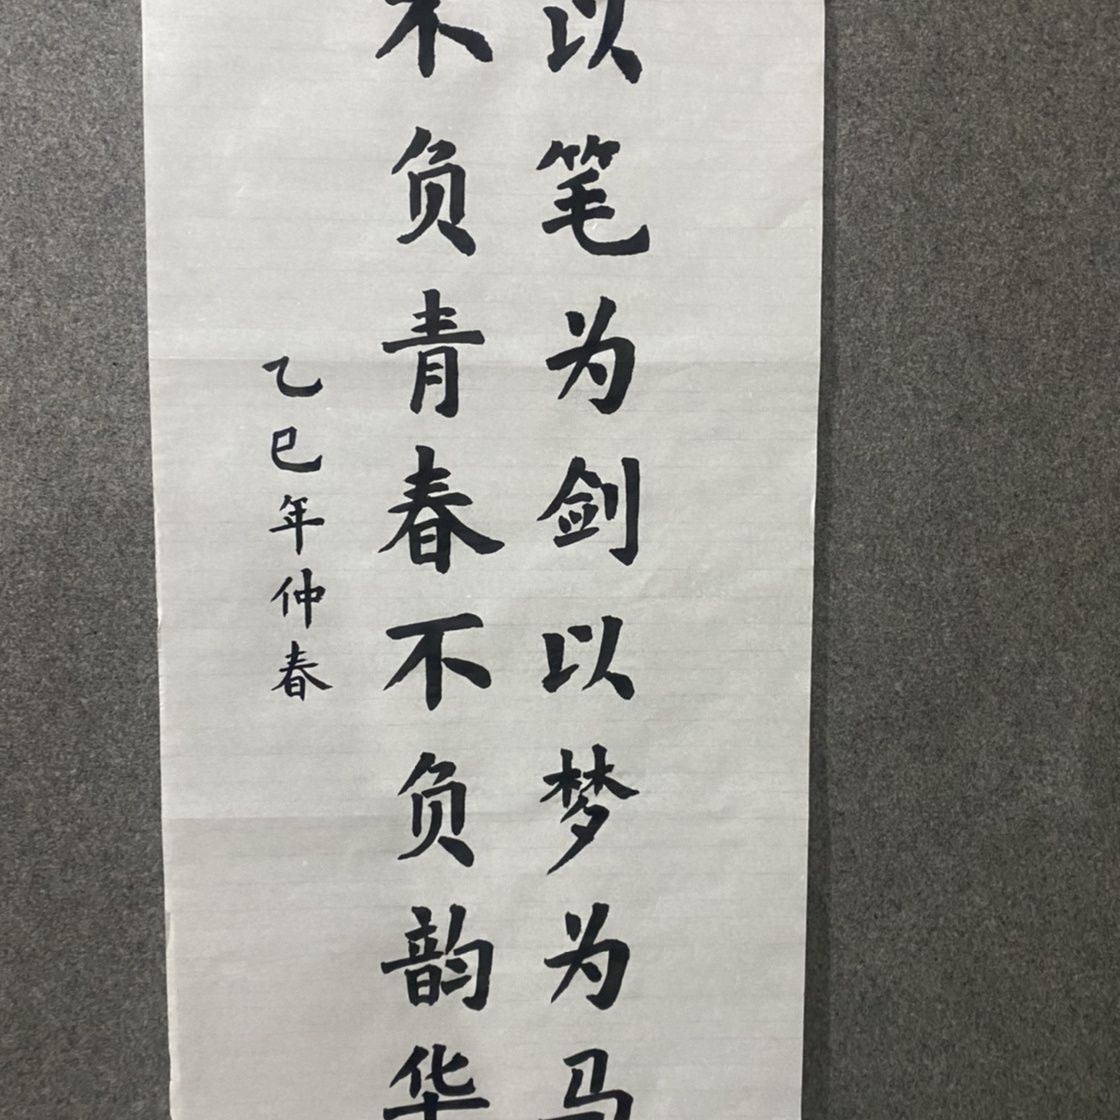 以笔为剑以梦为马
不负青春不负韵华
乙巳年仲春